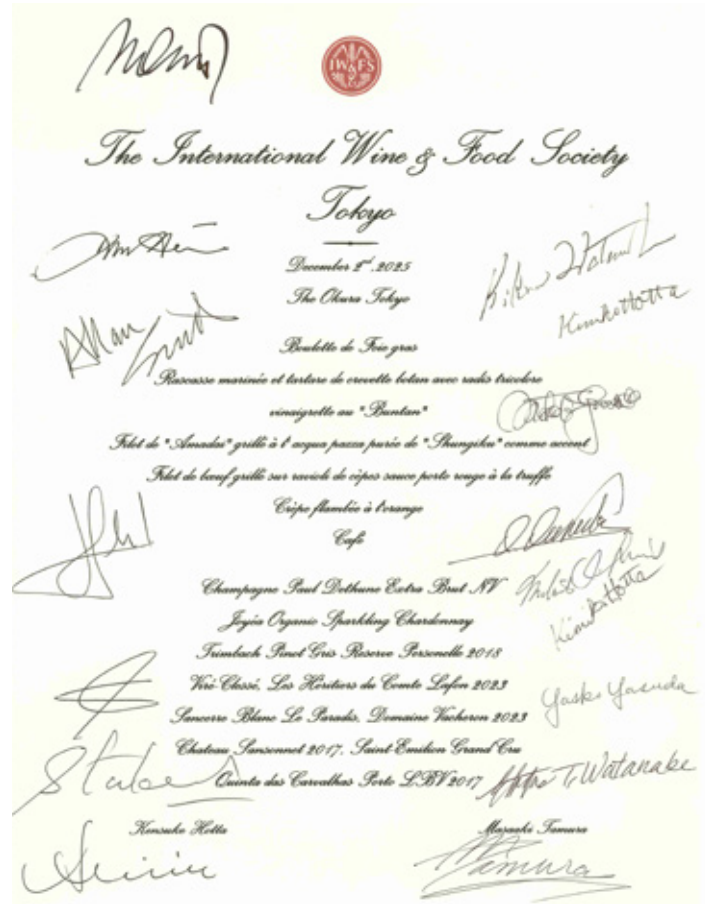 IW&FS
The International Wine & Food Society
Tokyo
December 2nd.2025
The Okura Tokyo
Kimiko Hotta
Allan
Boulette de Foie gras
Rascasse marinée et tartare de crevette botan avec radis tricolore
vinaigrette au "Buntan"
Filet de "Amadai" grillé à l'acqua pazza purée de "Shungiku" comme accent
Filet de bœuf grillé sur ravioli de cèpes sauce porto rouge à la truffe
Crêpe flambée à l'orange
Café
Champagne Paul Dethune Extra Brut NV
Joyéa Organic Sparkling Chardonnay
Kimiko Hotta
Trimbach Pinot Gris Reserve Personelle 2018
Viré-Clessé, Les Héritiers du Comte Lafon 2023
Yasuda
Sancerre Blanc Le Paradis, Domaine Vacheron 2023
Chateau Sansonnet 2017, Saint-Emilion Grand Cru
T. Watanabe
Quinta das Carvalhas Porto LBV 2017
Kensuke Hotta
Masaaki Tamura
Tamura